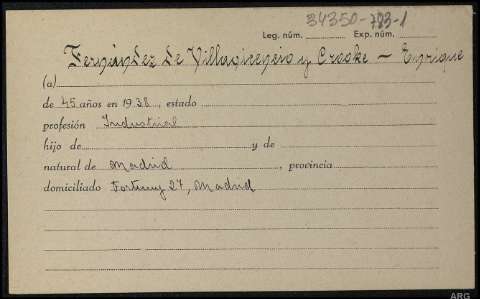 34350-783-1
Leg. núm. Exp. núm.
Fernández de Villavicencio y Crooke - Enrique
(a)
de 45 años en 1938, estado
profesión Industrial
hijo de y de
natural de Madrid, provincia
domiciliado Fortuny 27, Madrid
ARG